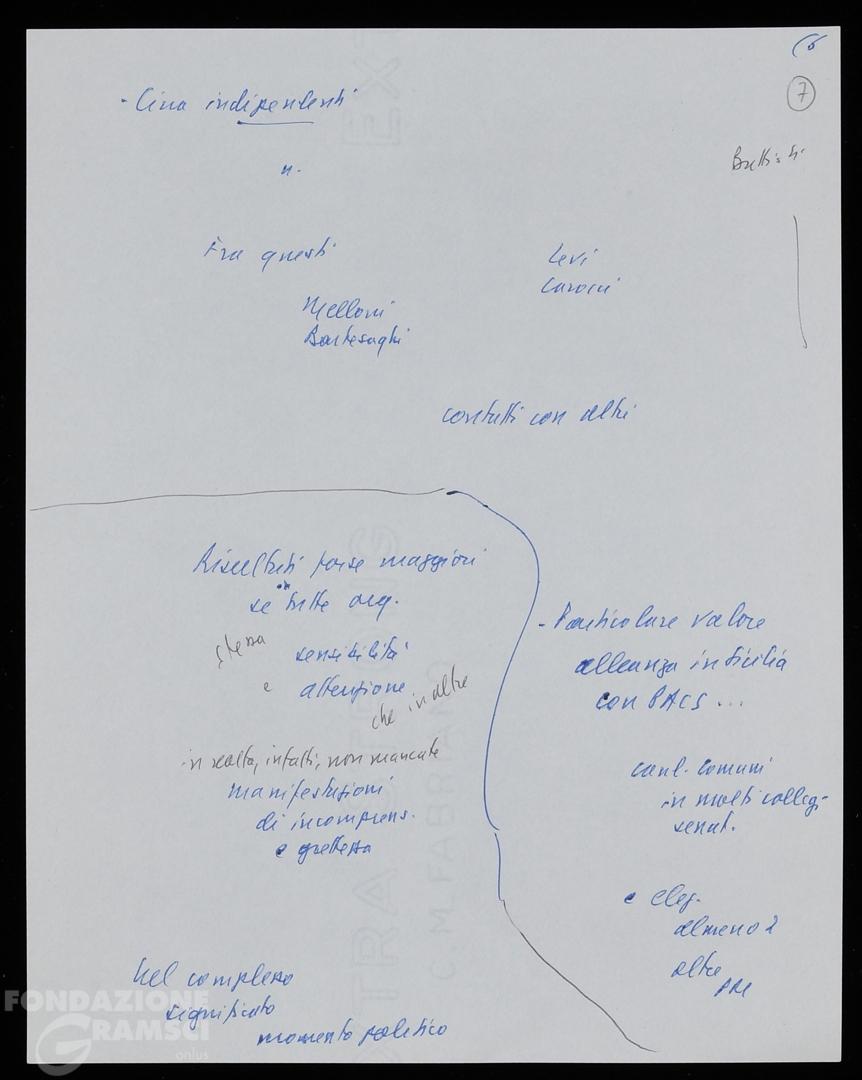 7
- Circa indipendenti
n.
Fra questi
Melloni
Bartesaghi
Levi
Carocci
contatti con altri
Risultati forse maggiori
se in tutte org.
stessa
sensibilità
e attenzione
che in altre
in realtà, infatti, non mancate
manifestazioni
di incomprens.
e grettezza
Nel complesso
significato
momento politico
- Particolare valore
alleanza in Sicilia
con PACS ...
cand. comuni
in molti collegi
senat.
e eleg.
almeno 2
oltre
EXTRA STRONG
C.M.FABRIANO
FONDAZIONE
GRAMSCI
onlus